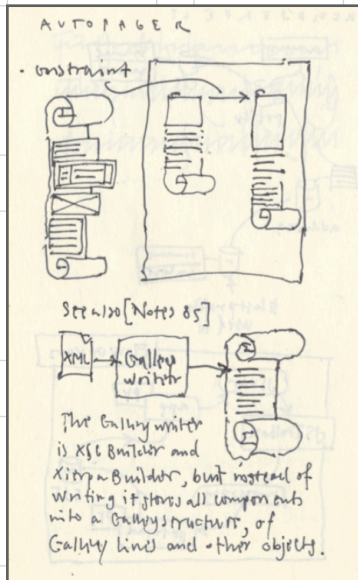 AUTOPAGER
· constraint
See also [Notes 85]
XML
Galley
writer
The Galleywriter
is XSL Builder and
Builder, but instead of
writing it stores all components
into a Gallerystructure, of
Galley Lines and other objects.